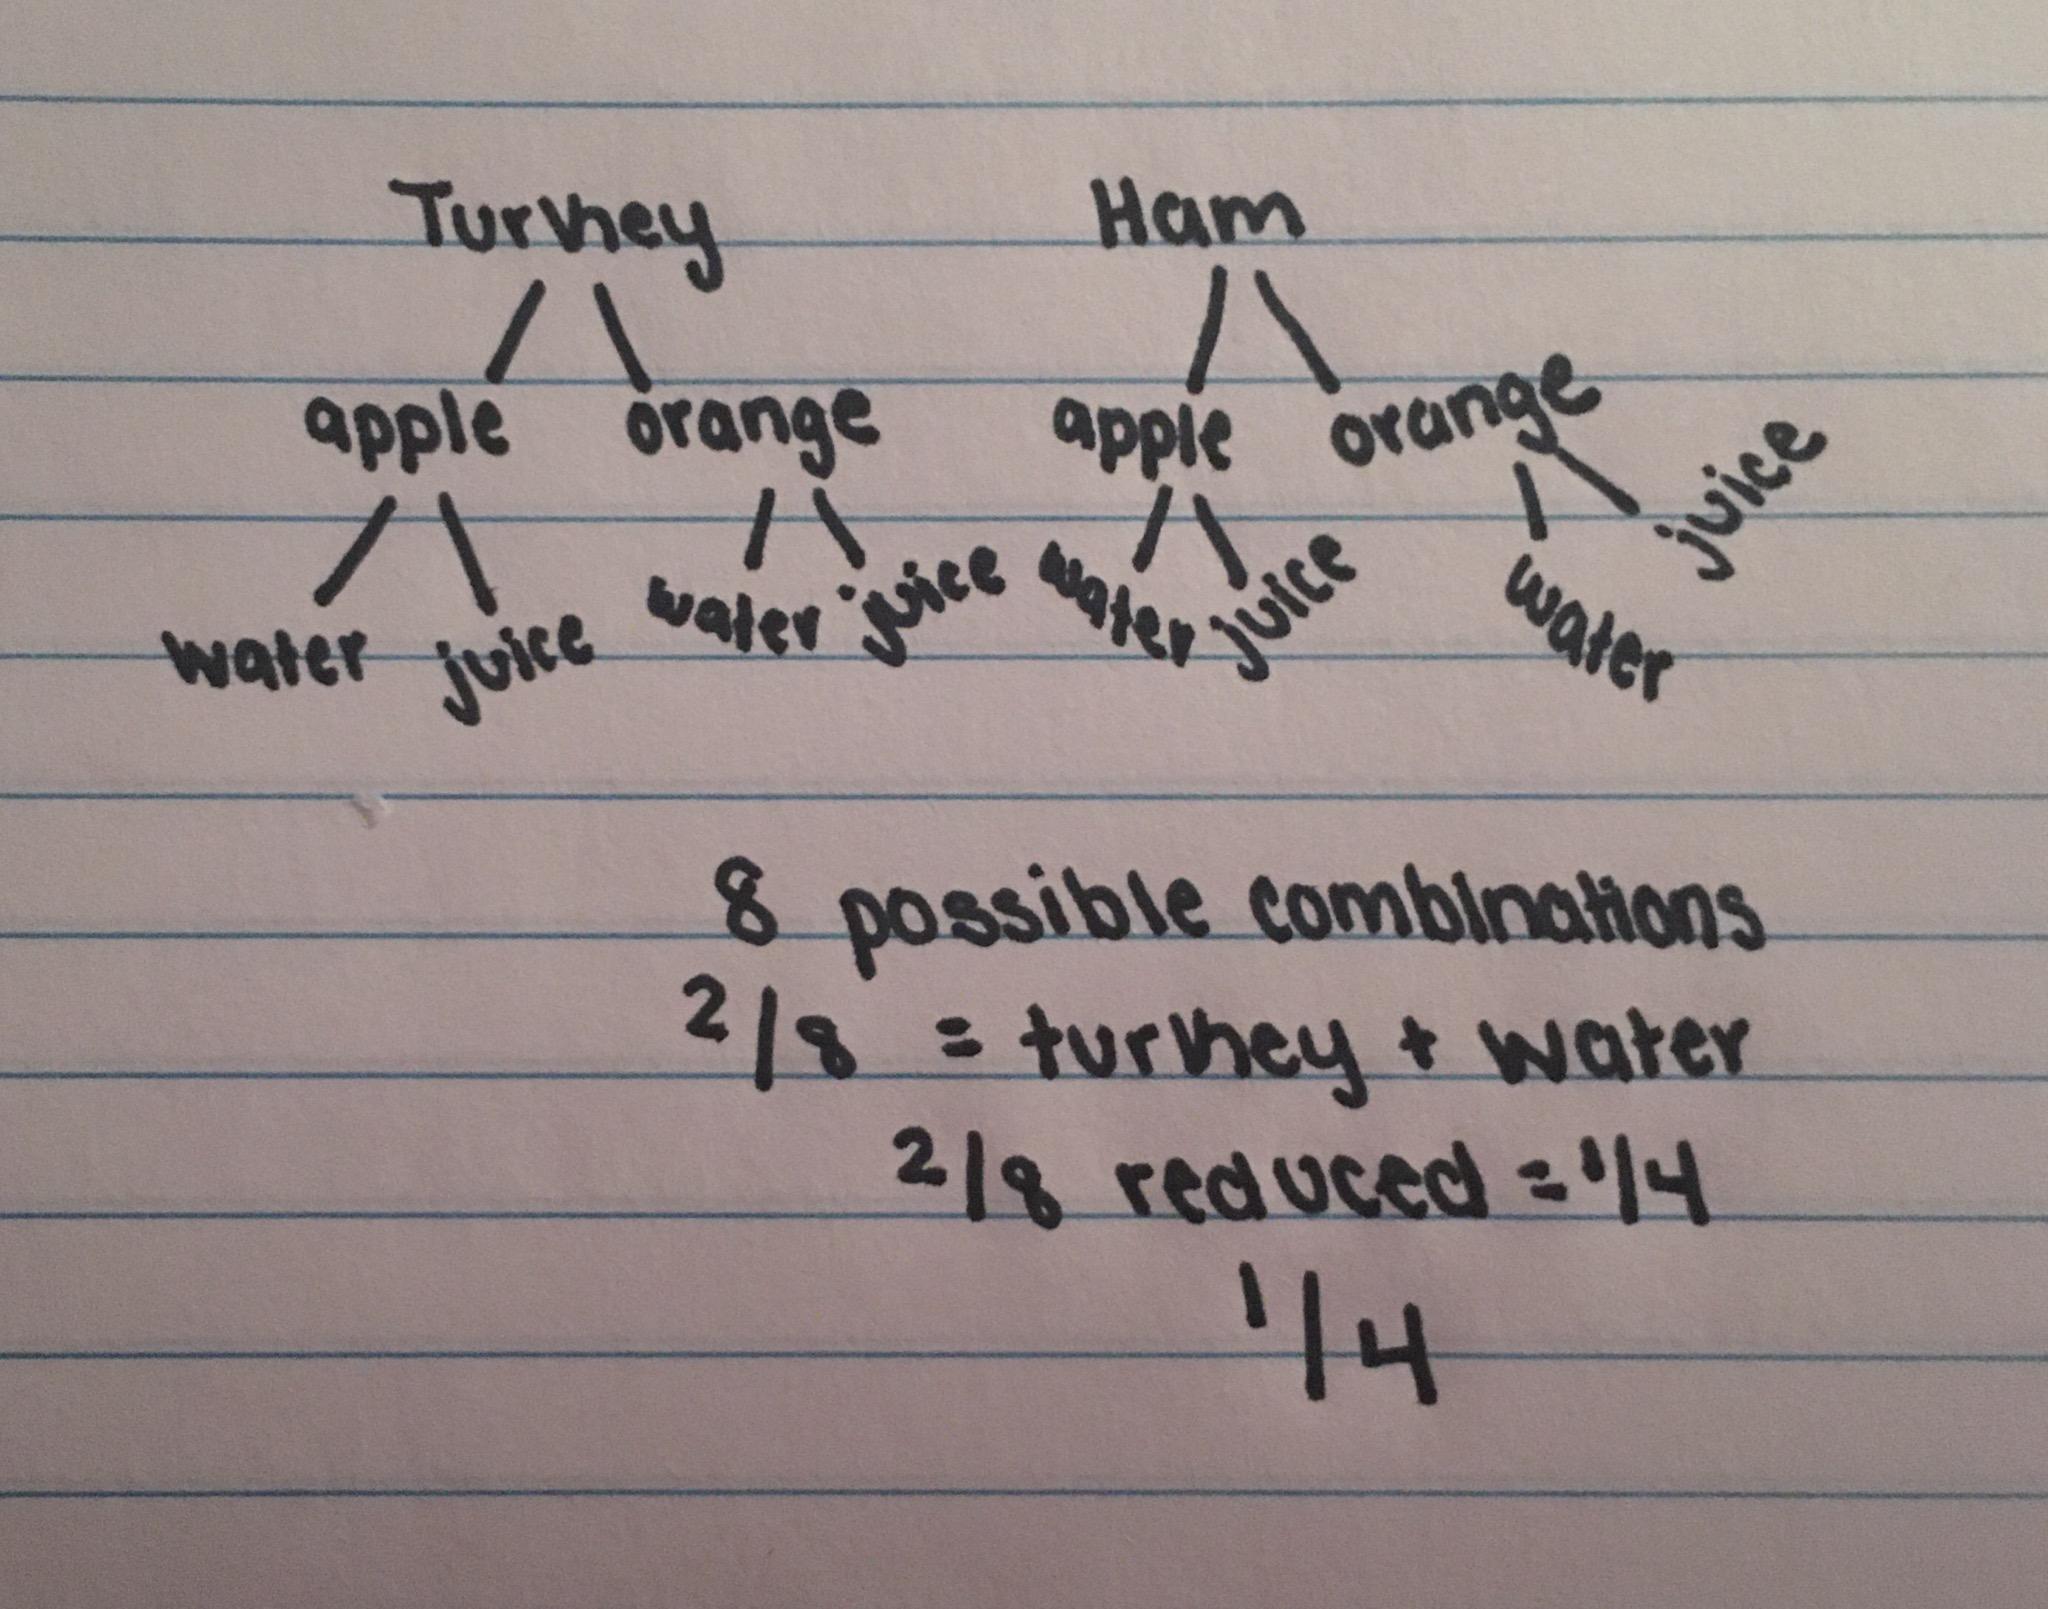 Turkey Ham
apple orange apple orange
water juice water juice water juice water juice
8 possible combinations
2/8 = turkey + water
2/8 reduced = 1/4
1/4